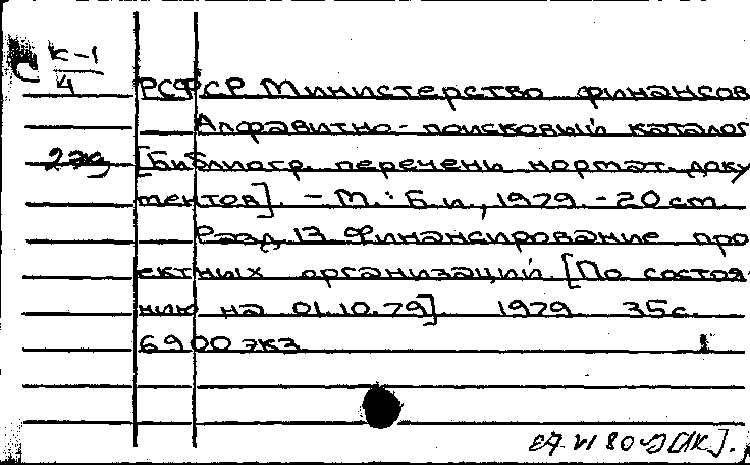 С К-1
4
РСФСР Министерство финансов
Алфавитно-поисковый каталог
[Библиогр. перечени нормат. доку
ментов]. - М.: Б.и., 1979. - 20 см.
Разд. 13 Финансирование про
ектных организаций. [По состоя
нию на 01.10.79]. 1979 35с.
6900 экз